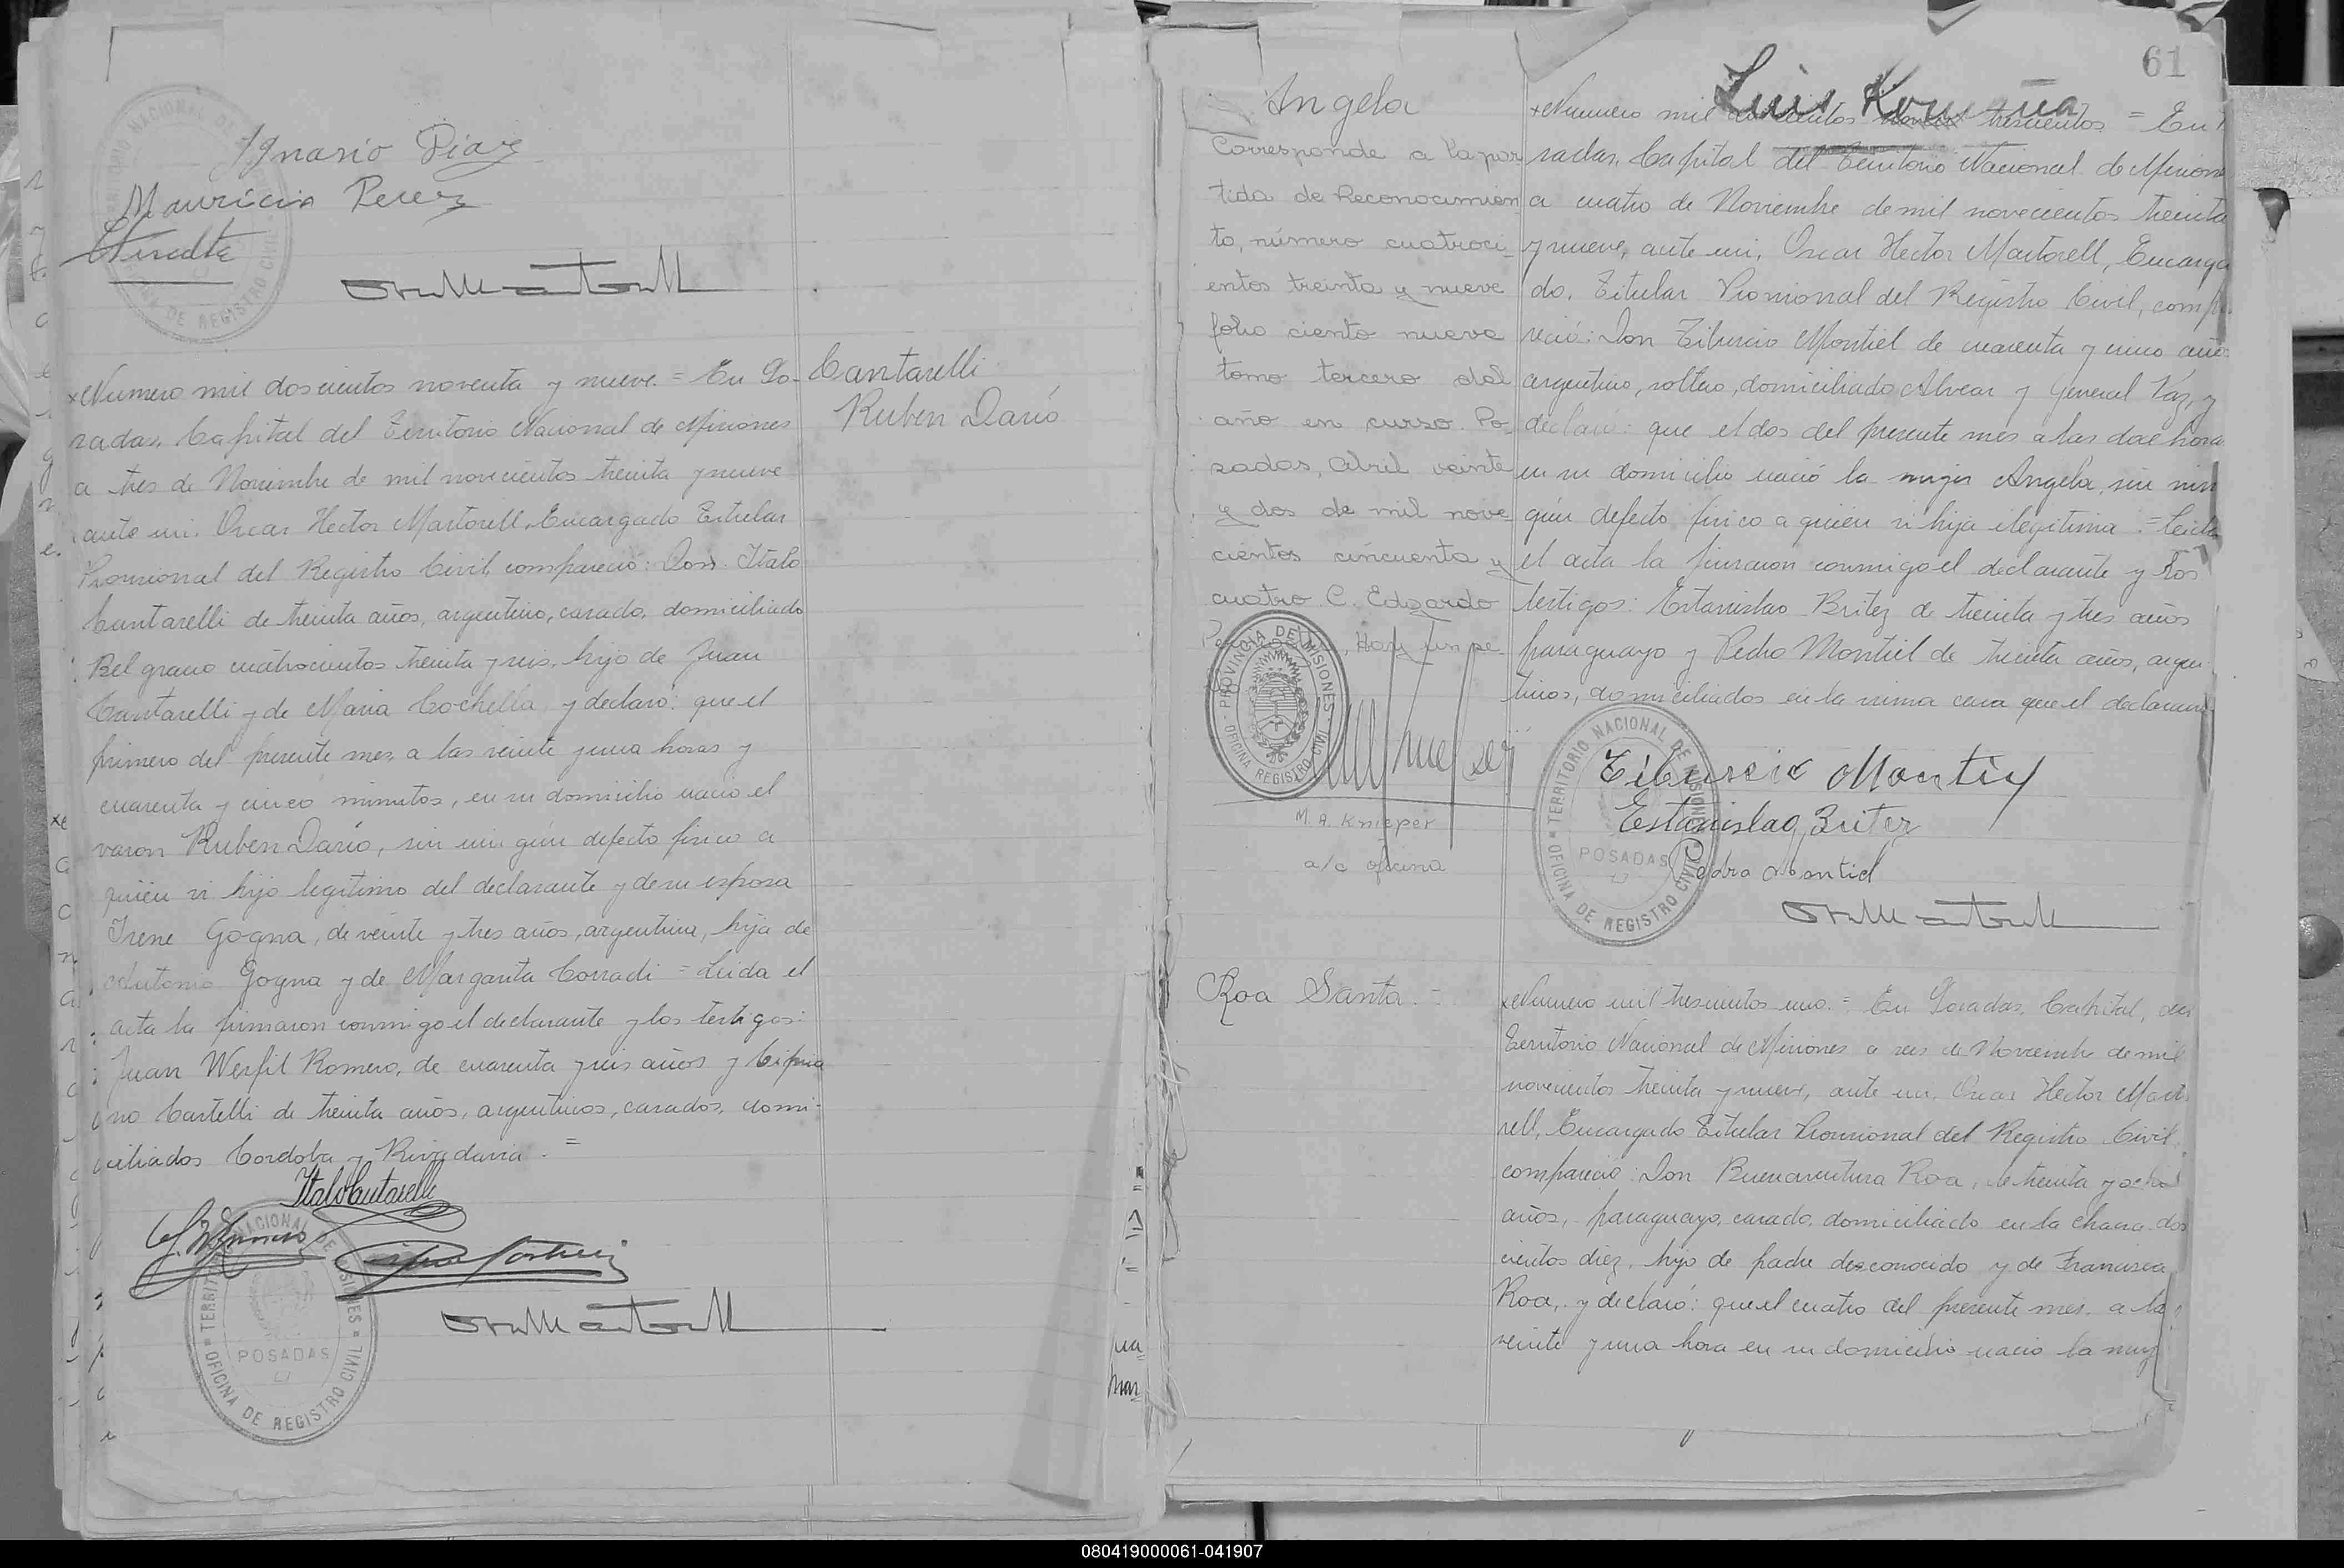 Ignasio Diaz
Mauricio Perez
TERRITORIO NACIONAL DE MISIONES
OFICINA DE REGISTRO CIVIL
Numero mil doscientos noventa y nueve = En Po-
sadas, Capital del Territorio Nacional de Misiones
a tres de Noviembre de mil novecientos treinta y nueve
ante mi, Oscar Hector Martorell, Encargado Titular
Provisional del Registro Civil, compareció: Don Italo
Cantarelli de treinta años, argentino, casado, domiciliado
Belgrano cuatrocientos treinta y seis, hijo de Juan
Cantarelli y de Maria Cochella y declaró: que el
primero del presente mes a las veinte y una horas y
cuarenta y cinco minutos, en su domicilio nació el
varon Ruben Darío, sin nin gún defecto fisico a
quien vi hijo legitimo del declarante y de su esposa
Irene Gogna, de veinte y tres años, argentina, hija de
Antonio Gogna y de Margarita Corradi = Leida el
acta la firmaron conmigo el declarante y los testigos:
Juan Werfil Romero, de cuarenta y seis años y Cipria
no Castelli de treinta años, argentinos, casados, domi-
ciliados Cordoba y Rivadavia. =
Cantarelli
Ruben Darío
TERRITORIO NACIONAL DE MISIONES
POSADAS
OFICINA DE REGISTRO CIVIL
61
Luis
Angela
Corresponde a la par
tida de Reconocimien
to, número cuatroci-
entos treinta y nueve
folio ciento nueve
tomo tercero del
año en curso. Po-
sadas, Abril veinte
y dos de mil nove
cientos cincuenta y
cuatro. C. Edgardo
PROVINCIA DE MISIONES
OFICINA REGISTRO CIVIL
M. A. Knieper
a/c oficina
Numero mil trescientos = En
sadas, Capital del Territorio Nacional de Misiones
a cuatro de Noviembre de mil novecientos treinta
y nueve, ante mi, Oscar Hector Martorell, Encarga
do, Titular Provisional del Registro Civil, compa
reció: Don Tiburcio Montiel de cuarenta y cinco años
argentino, soltero, domiciliado Alvear y General Paz, y
declaró: que el dos del presente mes a las doce hora
en su domicilio nació la mujer Angela, sin nin
gún defecto fisico a quien vi hija ilegitima. = Leida
el acta la firmaron conmigo el declarante y los
testigos: Estanislao Britez de treinta y tres años
paraguayo y Pedro Montiel de treinta años, argen
tinos, domiciliados en la misma casa que el declarante
Tiburcio Montiel
Estanislao Britez
Pedro Montiel
TERRITORIO NACIONAL DE MISIONES
POSADAS
OFICINA DE REGISTRO CIVIL
Roa Santa. -
Numero mil trescientos uno. = En Posadas, Capital, del
Territorio Nacional de Misiones a seis de Noviembre de mil
novecientos treinta y nueve, ante mi, Oscar Hector Marto
rell, Encargado Titular Provisional del Registro Civil,
compareció: Don Buenaventura Roa, de treinta y ocho
años, paraguayo, casado, domiciliado en la chacra dos
cientos diez, hijo de padre desconocido y de Francisca
Roa, y declaró: que el cuatro del presente mes a la
veinte y una hora en su domicilio nació la muj
080419000061-041907